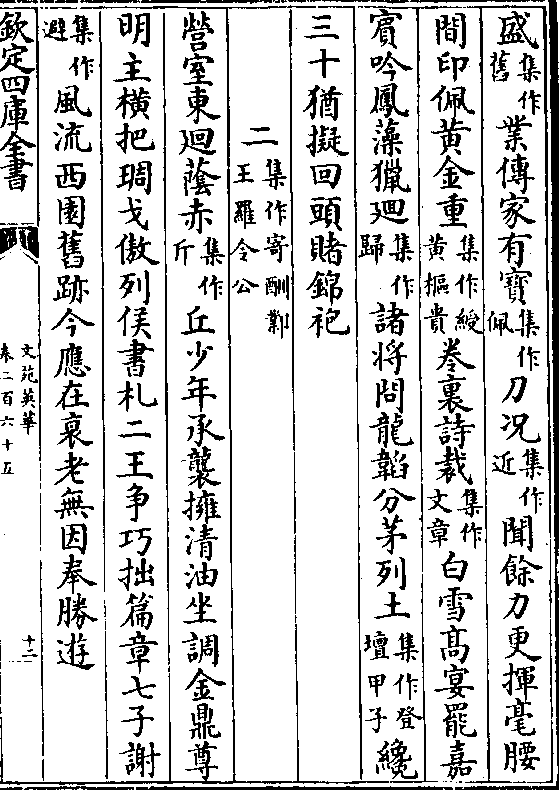 盛集作舊業傳家有寳集作佩刀况集作近聞餘力更揮毫腰
間印佩黄金重集作綬黄樞貴卷裏詩裁集作文章白雪髙宴罷嘉
賔吟鳳藻獵廻集作歸諸將問龍韜分茅列土集作登壇甲子纔
三十猶擬回頭賭錦袍
二集作寄酬鄴王羅令公
營室東廻蔭赤集作斤丘少年承襲擁清油坐調金鼎尊
明主横把琱戈傲列侯書札二王争巧拙篇章七子謝
集作避風流西園舊跡今應在衰老無因奉勝遊
欽定四庫全書
文苑英華
卷二百六十五
十二